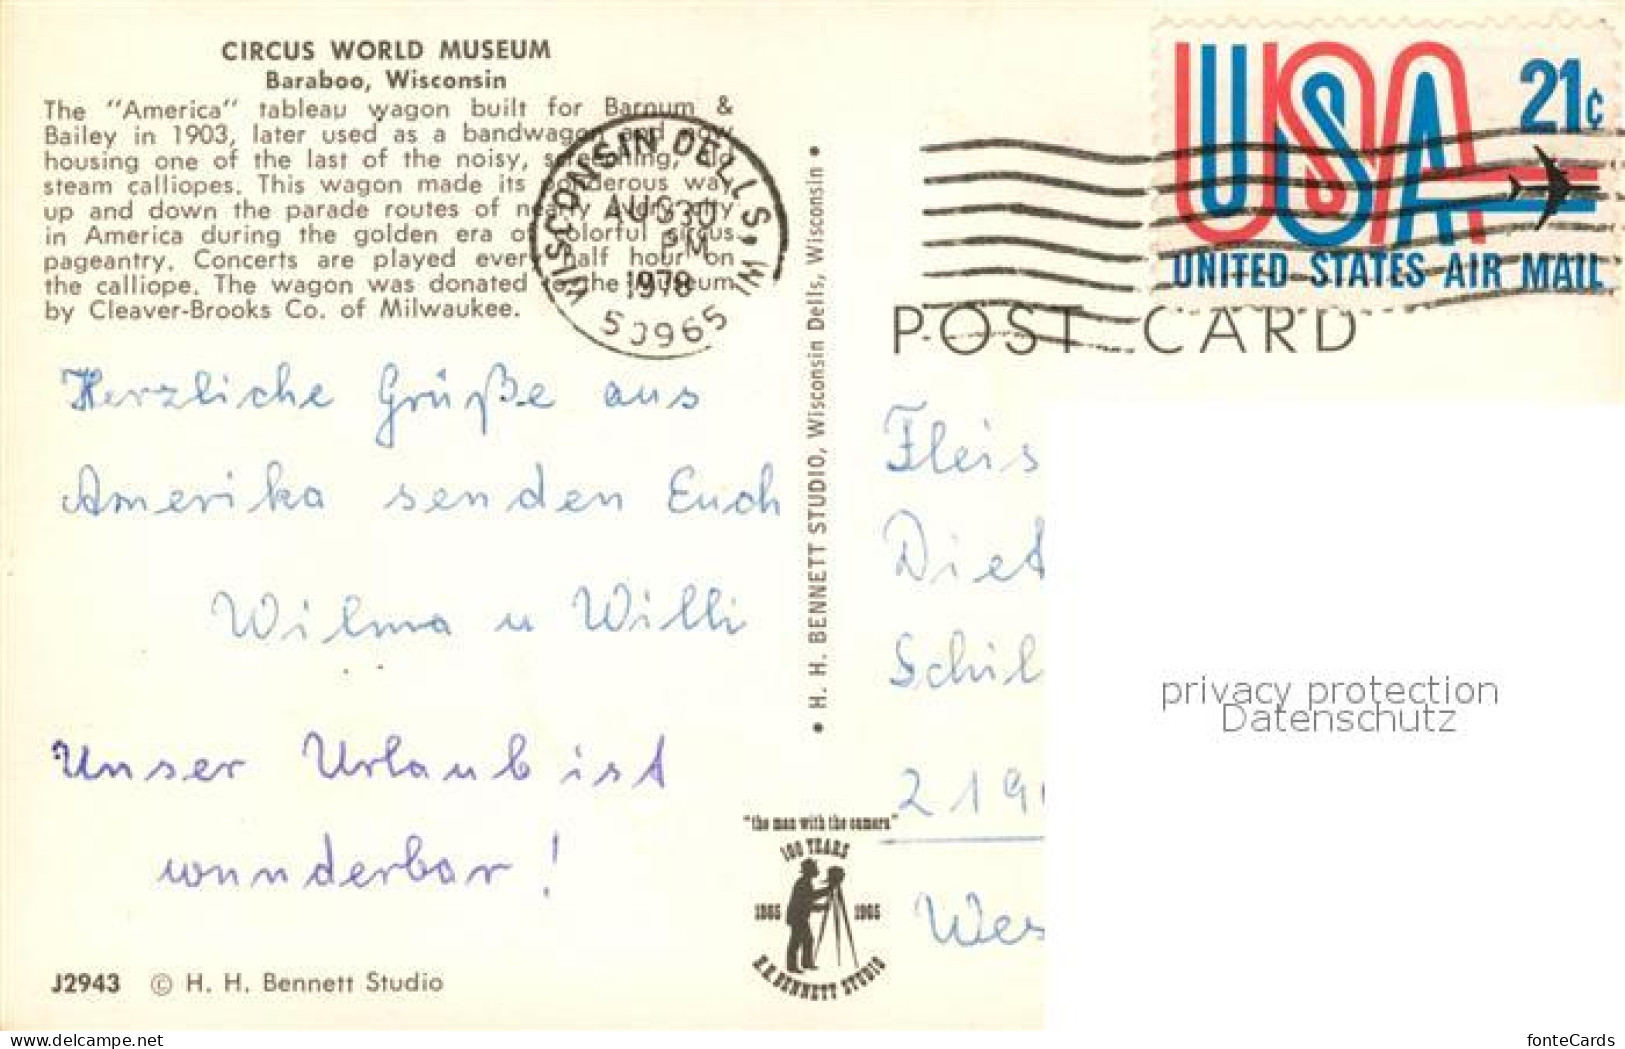 CIRCUS WORLD MUSEUM
Baraboo, Wisconsin
The "America" tableau wagon built for Barnum &
Bailey in 1903, later used as a bandwagon and now
housing one of the last of the noisy, screeching, old
steam calliopes. This wagon made its ponderous way
up and down the parade routes of nearly every city
in America during the golden era of colorful circus
pageantry. Concerts are played every half hour on
the calliope. The wagon was donated to the Museum
by Cleaver-Brooks Co. of Milwaukee.
WISCONSIN DELLS, WI
AUG 30
PM
1978
53965
USA 21¢
UNITED STATES AIR MAIL
POST CARD
Herzliche Grüße aus
Amerika senden Euch
Wilma u Willi
Unser Urlaub ist
wunderbar!
• H. H. BENNETT STUDIO, Wisconsin Dells, Wisconsin •
Fleis
Diet
Schil
219
Wes
privacy protection
Datenschutz
"the man with the camera"
100 YEARS
1865 1965
H.H. BENNETT STUDIO
J2943 © H. H. Bennett Studio
www.delcampe.net
fonteCards